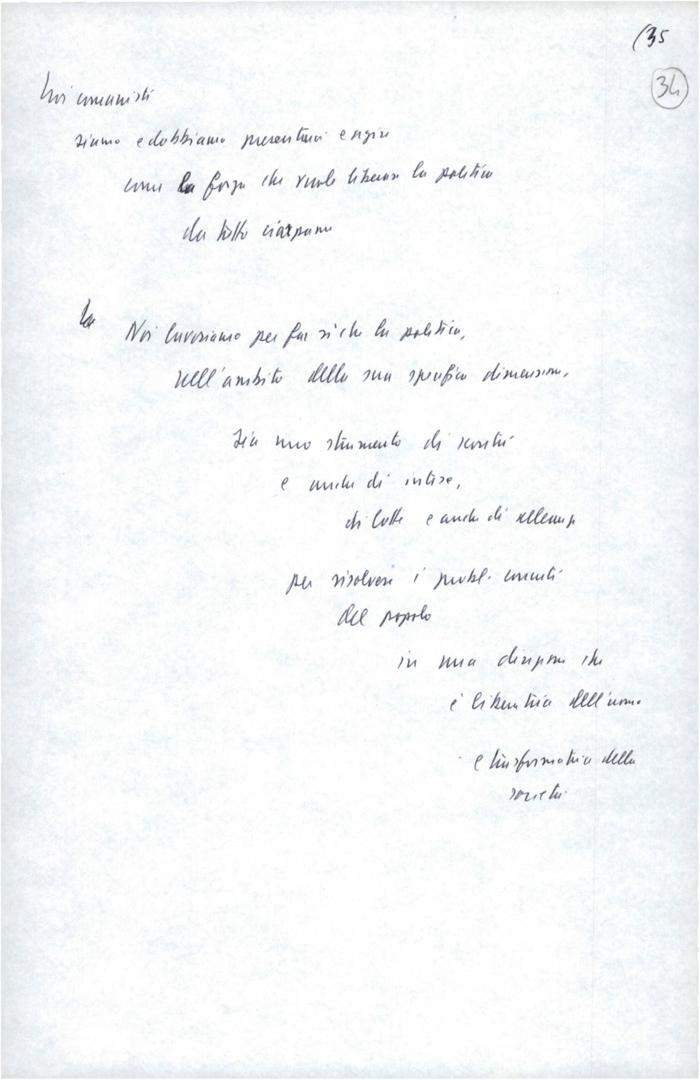 (35
34
Noi comunisti
siamo e dobbiamo presentarci e agire
come la forza che vuole liberare la politica
da tutto ciarpame
Noi lavoriamo per far sì che la politica,
nell'ambito della sua specifica dimensione,
sia uno strumento di scontri
e anche di intese,
di lotte e anche di alleanze
per risolvere i probl. concreti
del popolo
in una direzione che
è liberatrice dell'uomo
e trasformatrice della
società